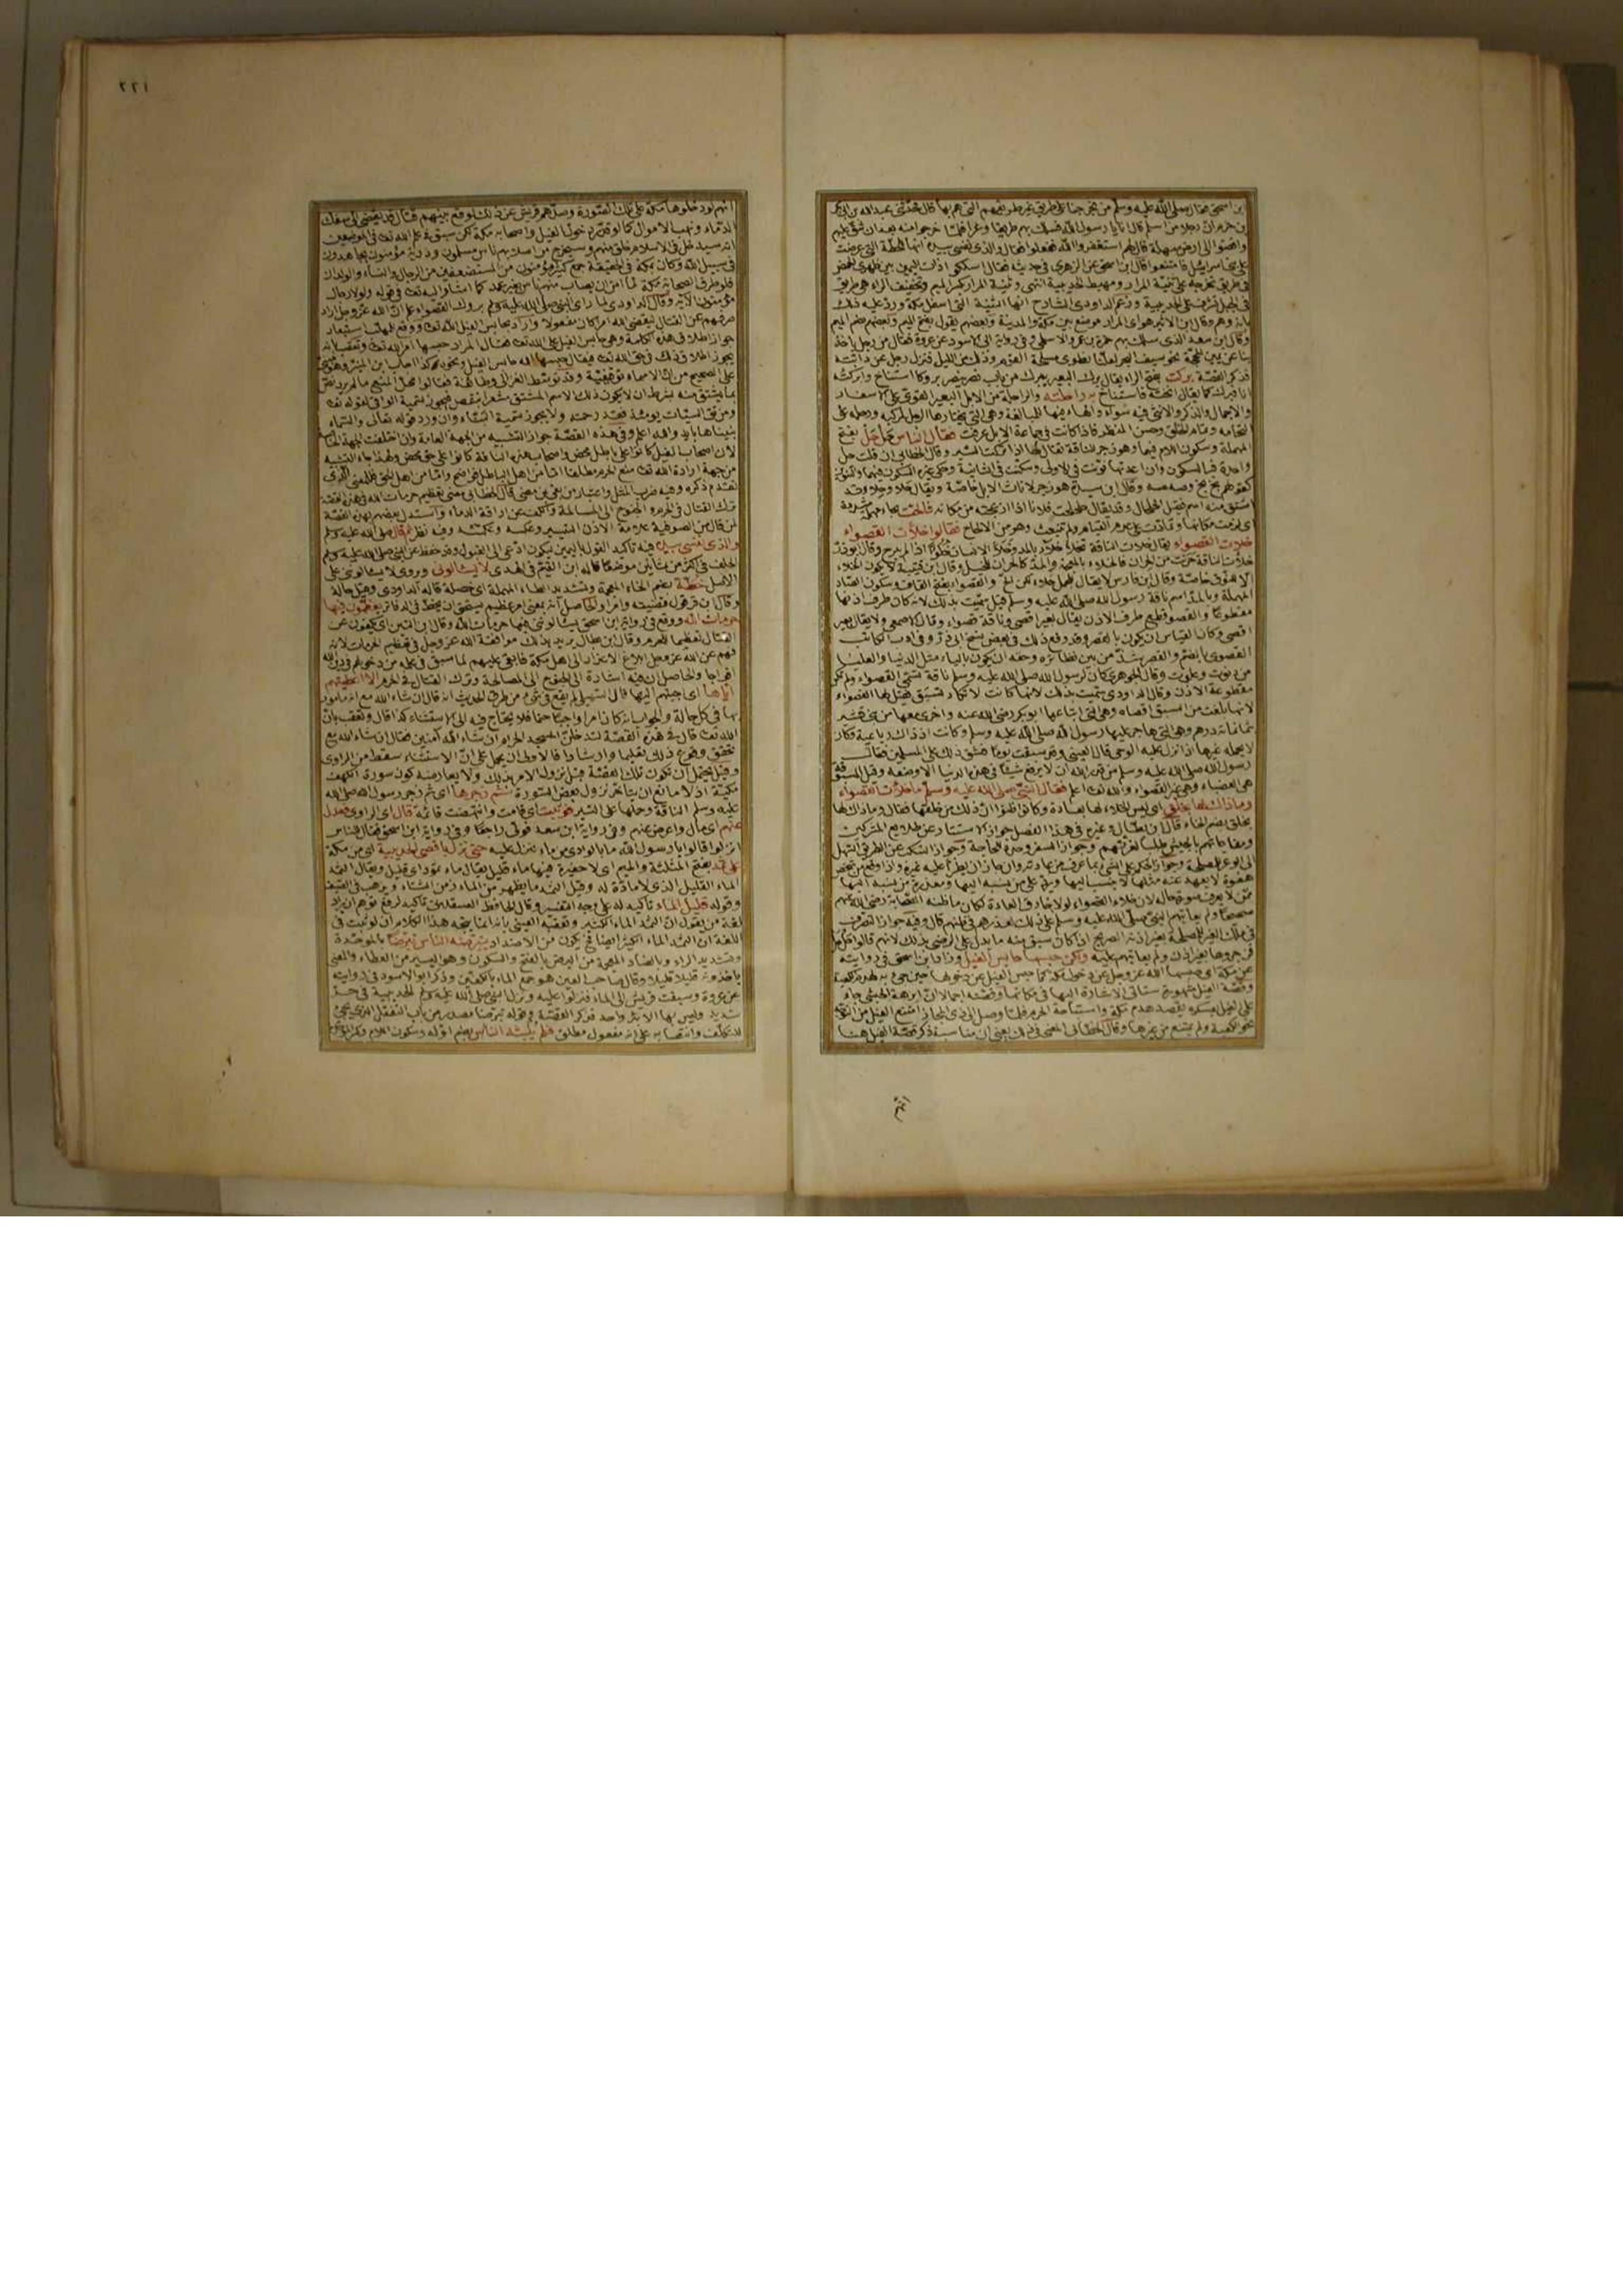 ابن اسحق فقال رسول الله صلى الله عليه وسلم من يخرجنا على طريق غير طريقهم التي هم بها قال فحدثني عبد الله بن ابي بكر
بن حزم ان رجلا من اسلم قال انا يا رسول الله فسلك بهم طريقا وعرا فلما خرجوا منه بعد ان شق عليهم
وافضوا الى ارض سهلة قال لهم استغفروا الله ففعلوا فقال والذي نفسي بيده انها للحطة التي عرضت
على بني اسرائيل فامتنعوا قال ابن اسحق عن الزهري في حديثه فقال اسلكوا ذات اليمين بين ظهري الحمض
في طريق تخرجه على ثنية المرار ومهبط الحديبية انتهى وثنية المرار بكسر الميم وتخفيف الراء هي طريق
في الجبل تشرف على الحديبية وزعم الداودي الشارح انها الثنية التي اسفل مكة ورد عليه ذلك
بانه وهم وقال ابن الاثير هو اي المرار موضع بين مكة والمدينة وبعضهم يقول بفتح الميم وبعضهم بضم الميم
وقال ابن سعد الذي سلك بهم حمزة بن عمرو الاسلمي وفي رواية ابي الاسود عن عروة فقال من رجل ياخذ
بنا عن يمين المحجة نحو سيف البحر لعلنا نطوي مسلحة القوم وذلك من الليل فنزل رجل عن دابته
فذكر القصة بركت بفتح الراء يقال برك البعير يبرك من باب نصر ينصر بروكا استناخ وابركته
انا فبرك كما يقال انخته فاستناخ به راحلته والراحلة من الابل البعير القوي على الاسفار
والاحمال والذكر والانثى فيه سواء والهاء فيها للمبالغة وهي التي يختارها الرجل لمركبه ورحله على
النجابة وتمام الخلق وحسن المنظر فاذا كانت في جماعة الابل عرفت فقال الناس حل حل بفتح
المهملة وسكون اللام فيهما وهو زجر للناقة تقال لها اذا تركت السير وقال الخطابي ان قلت حل
واحدة فبالسكون وان اعدتها نونت في الاولى وسكنت في الثانية وحكى غيره السكون فيهما والتنوين
كقولهم بخ بخ وصه صه وقال ابن سيده هو زجر لاناث الابل خاصة ويقال حلا وحل وقد
اشتق منه اسم فقيل الحلحال وقد يقال حلحلت فلانا اذا ازعجته من مكانه فالحت بحاء مهملة مشددة
اي لزمت مكانها وتمادت على عدم القيام ولم تنبعث وهو من الالحاح فقالوا خلأت القصواء
خلأت القصواء يقال خلأت الناقة تخلأ خلاء بالمد وخلأ الانسان خلوءا اذا لم يبرح وقال ابو ذر
خلأت الناقة حرنت من الحران فالخلاء بالمعجمة والمد كالحران للخيل وقال ابن قتيبة لا يكون الخلاء
الا للنوق خاصة وقال ابن فارس لا يقال للجمل خلأ لكن الح والقصواء بفتح القاف وسكون الصاد
المهملة وبالمد اسم ناقة رسول الله صلى الله عليه وسلم قيل سميت بذلك لانه كان طرف اذنها
مقطوعا والقصو قطع طرف الاذن يقال بعير اقصى وناقة قصواء وقال الاصمعي ولا يقال بعير
اقصى وكان القياس ان يكون بالقصر وقد وقع ذلك في بعض نسخ ابي ذر وفي ادب الكاتب
القصوى بالضم والقصر شذ من بين نظائره وحقه ان يكون بالياء مثل الدنيا والعليا
من دنوت وعلوت وقال الجوهري كان لرسول الله صلى الله عليه وسلم ناقة تسمى القصواء ولم تكن
مقطوعة الاذن وقال الداودي سميت بذلك لانها كانت لا تكاد تسبق فقيل لها القصواء
لانها بلغت من السبق اقصاه وهي التي ابتاعها ابو بكر رضي الله عنه واخرى معها من بني قشير
بثمانمائة درهم وهي التي هاجر عليها رسول الله صلى الله عليه وسلم وكانت اذ ذاك رباعية وكان
لا يحمله غيرها اذا نزل عليه الوحي قال العيني وقد سبقت يوما فشق ذلك على المسلمين فقال
رسول الله صلى الله عليه وسلم من قدر الله ان لا يرفع شيئا في هذه الدنيا الا وضعه وقيل المسبوقة
هي العضباء وهي غير القصواء والله تعالى اعلم فقال النبي صلى الله عليه وسلم ما خلأت القصواء
وما ذاك لها بخلق اي ليس الخلاء لها بعادة وكانوا ظنوا ان ذلك من خلقها فقال وما ذاك لها
بخلق بضم الخاء قال ابن بطال وغيره في هذا الفصل جواز الاستتار عن طلايع المشركين
ومفاجاتهم بالجيش طلبا لغرتهم وجواز السفر وحده للحاجة وجواز التنكب عن الطريق السهل
الى الوعر للمصلحة وجواز الحكم على الشئ بما عرف من عادته وان جاز ان يطرأ عليه غيره واذا وقع من شخص
هفوة لا يعهد عنه مثلها لا ينسب اليها ويرد على من ينسبه اليها ومعذرة من ينسبه اليها
ممن لا يعرف صورة حاله لان خلاء القصواء لولا خارق العادة لكان ما ظنه الصحابة رضي الله عنهم
صحيحا ولم يعاتبهم النبي صلى الله عليه وسلم على ذلك لعذرهم في ظنهم قال وفيه جواز التصرف
في ملك الغير للمصلحة بغير اذنه الصريح اذا كان سبق منه ما يدل على الرضى بذلك لانهم قالوا حل حل
فزجروها بغير اذن ولم يعاتبهم عليه ولكن حبسها حابس الفيل وزاد ابن اسحق في روايته
عن مكة اي حبسها الله عز وجل عن دخول مكة كما حبس الفيل عن دخولها حين جيء به لهدم الكعبة
وقصة الفيل مشهورة ستاتي الاشارة اليها في مكانها وقصته اجمالا ان ابرهة الحبشي جاء
على الفيل بعسكره يقصد هدم مكة واستباحة الحرم فلما وصل الى ذي المجاز امتنع الفيل من التوجه
نحو الكعبة ولم يمتنع من غيرها وقال الخطابي المعنى في ذلك يعني ان مناسبة ذكر قصة الفيل هنا
انهم
٢٢١
انهم لو دخلوها مكة على تلك الصورة وصدهم قريش عن ذلك لوقع بينهم قتال قد يفضي الى سفك
الدماء ونهب الاموال كما لو قدر دخول الفيل واصحابه مكة لكن سبق في علم الله تعالى في الموضعين
انه سيدخل في الاسلام خلق منهم وسيخرج من اصلابهم ناس مسلمون وذرية مؤمنون يجاهدون
في سبيل الله وكان بمكة في الحديبية جمع كثير مؤمنون من المستضعفين من الرجال والنساء والولدان
فلو طرق الصحابة مكة لما امن ان يصاب منهم ناس بغير عمد كما اشار اليه تعالى في قوله ولولا رجال
مؤمنون الآية وقال الداودي لما راى النبي صلى الله عليه وسلم بروك القصواء علم ان الله عز وجل اراد
صرفهم عن القتال ليقضي الله امرا كان مفعولا واراد بحابس الفيل الله تعالى ووقع للمهلب استبعاد
جواز اطلاق هذه الكلمة وهي حابس الفيل على الله تعالى فقال المراد حبسها امر الله تعالى وتعقب بانه
يجوز اطلاق ذلك في حق الله تعالى فيقال حبسها الله حابس الفيل ونحوه كذا اجاب ابن المنير وهو مبني
على الصحيح من ان الاسماء توقيفية وقد توسط الغزالي وطائفة فقالوا محل المنع ما لم يرد نص
بما يشتق منه بشرط ان لا يكون ذلك الاسم المشتق مشعرا بنقص فيجوز تسمية الواقي لقوله تعالى
ومن تق السيئات يومئذ فقد رحمته ولا يجوز تسمية البناء وان ورد قوله تعالى والسماء
بنيناها بايد والله اعلم وفي هذه القصة جواز التشبيه من الجهة العامة وان اختلفت الجهة الخاصة
لان اصحاب الفيل كانوا على باطل محض واصحاب هذه الناقة كانوا على حق محض ولهذا جاء التشبيه
من جهة ارادة الله تعالى منع الحرم مطلقا اما من اهل الباطل فواضح واما من اهل الحق فللمعنى الذي
تقدم ذكره وفيه ضرب المثل واعتبار من بقي بمن مضى قال الخطابي معنى تعظيم حرمات الله في هذه القصة
ترك القتال في الحرم والجنوح الى المسالمة والكف عن اراقة الدماء واستدل بعضهم بهذه القصة
لمن قال من الصوفية علامة الاذن التيسير وعكسه وعكسه وفيه نظر ثم قال صلى الله عليه وسلم
والذي نفسي بيده فيه تاكيد القول باليمين ليكون ادعى الى القبول وقد حفظ عن النبي صلى الله عليه وسلم
الحلف في اكثر من ثمانين موضعا قاله ابن القيم في الهدى لا يسألوني ويروى لا يسألونني على
الاصل خطة بضم الخاء المعجمة وتشديد الطاء المهملة اي خصلة قاله الداودي وقيل حالة
وقال ابن قرقول قضية وامرا والحاصل انه بمعنى امر عظيم يستحق ان يخط في الدفاتر يعظمون فيها
حرمات الله ووقع في رواية ابن اسحق يسألونني فيها حرمات الله وقال ابن التين اي يكفون عن
القتال تعظيما للحرم وقال ابن بطال يريد بذلك موافقة الله عز وجل في تعظيم الحرمات لانه
فهم عن الله عز وجل ابلاغ الاعذار الى اهل مكة فابقى عليهم لما سبق في علمه من دخولهم في دين الله
افواجا والحاصل ان فيه اشارة الى الجنوح الى المصالحة وترك القتال في الحرم الا اعطيتهم
اياها اي اجبتهم اليها قال السهيلي لم يقع في شيء من طرق الحديث انه قال ان شاء الله مع انه مامور
بها في كل حالة والجواب انه كان امرا واجبا حتما فلا يحتاج فيه الى الاستثناء كذا قال وتعقب بان
الله تعالى قال في هذه القصة لتدخلن المسجد الحرام ان شاء الله آمنين فقال ان شاء الله مع
تحقق وقوع ذلك تعليما وارشادا فالاولى ان يحمل على ان الاستثناء سقط من الراوي
وقيل يحتمل ان تكون تلك القصة قبل نزول الامر بذلك ولا يعارضه كون سورة الكهف
مكية اذ لا مانع ان يتاخر نزول بعض السورة ثم زجرها اي ثم زجر رسول الله صلى الله
عليه وسلم الناقة وحملها على السير فوثبت اي قامت وانتهضت قائمة قال اي الراوي فعدل
عنهم اي مال واعرض عنهم وفي رواية ابن سعد فولى راجعا وفي رواية ابن اسحق فقال للناس
انزلوا قالوا يا رسول الله ما بالوادي من ماء ننزل عليه حتى نزل باقصى الحديبية اي من مكة
على ثمد بفتح المثلثة والميم اي لا حفيرة فيها ماء قليل يقال ماء مثمود اي قليل ويقال الثمد
الماء القليل الذي لا مادة له وقيل الثمد ما يظهر من الماء زمن الشتاء ويذهب في الصيف
وقوله قليل الماء تاكيد له على وجه التفسير وقال الحافظ العسقلاني تاكيد لرفع توهم ان يراد
لغة من يقول ان الثمد الماء الكثير وتعقبه العيني بانه انما يتجه هذا الكلام ان لو ثبت في
اللغة ان الثمد الماء الكثير ايضا فيكون من الاضداد يتبرضه الناس تبرضا بالموحدة
وتشديد الراء وبالضاد المعجمة من البرض بالفتح والسكون وهو اليسير من العطاء والمعنى
ياخذونه قليلا قليلا وقال صاحب العين هو جمع الماء بالكفين وذكر ابو الاسود في روايته
عن عروة وسبقت قريش الى الماء فنزلوا عليه ونزل النبي صلى الله عليه وسلم الحديبية في حر
شديد وليس بها الا بئر واحد فذكر القصة وقوله تبرضا مصدر من باب التفعل الذي يجيء
للتكلف وانتصابه على انه مفعول مطلق فلم يلبثه الناس بضم اوله وسكون اللام وكسر الموحدة